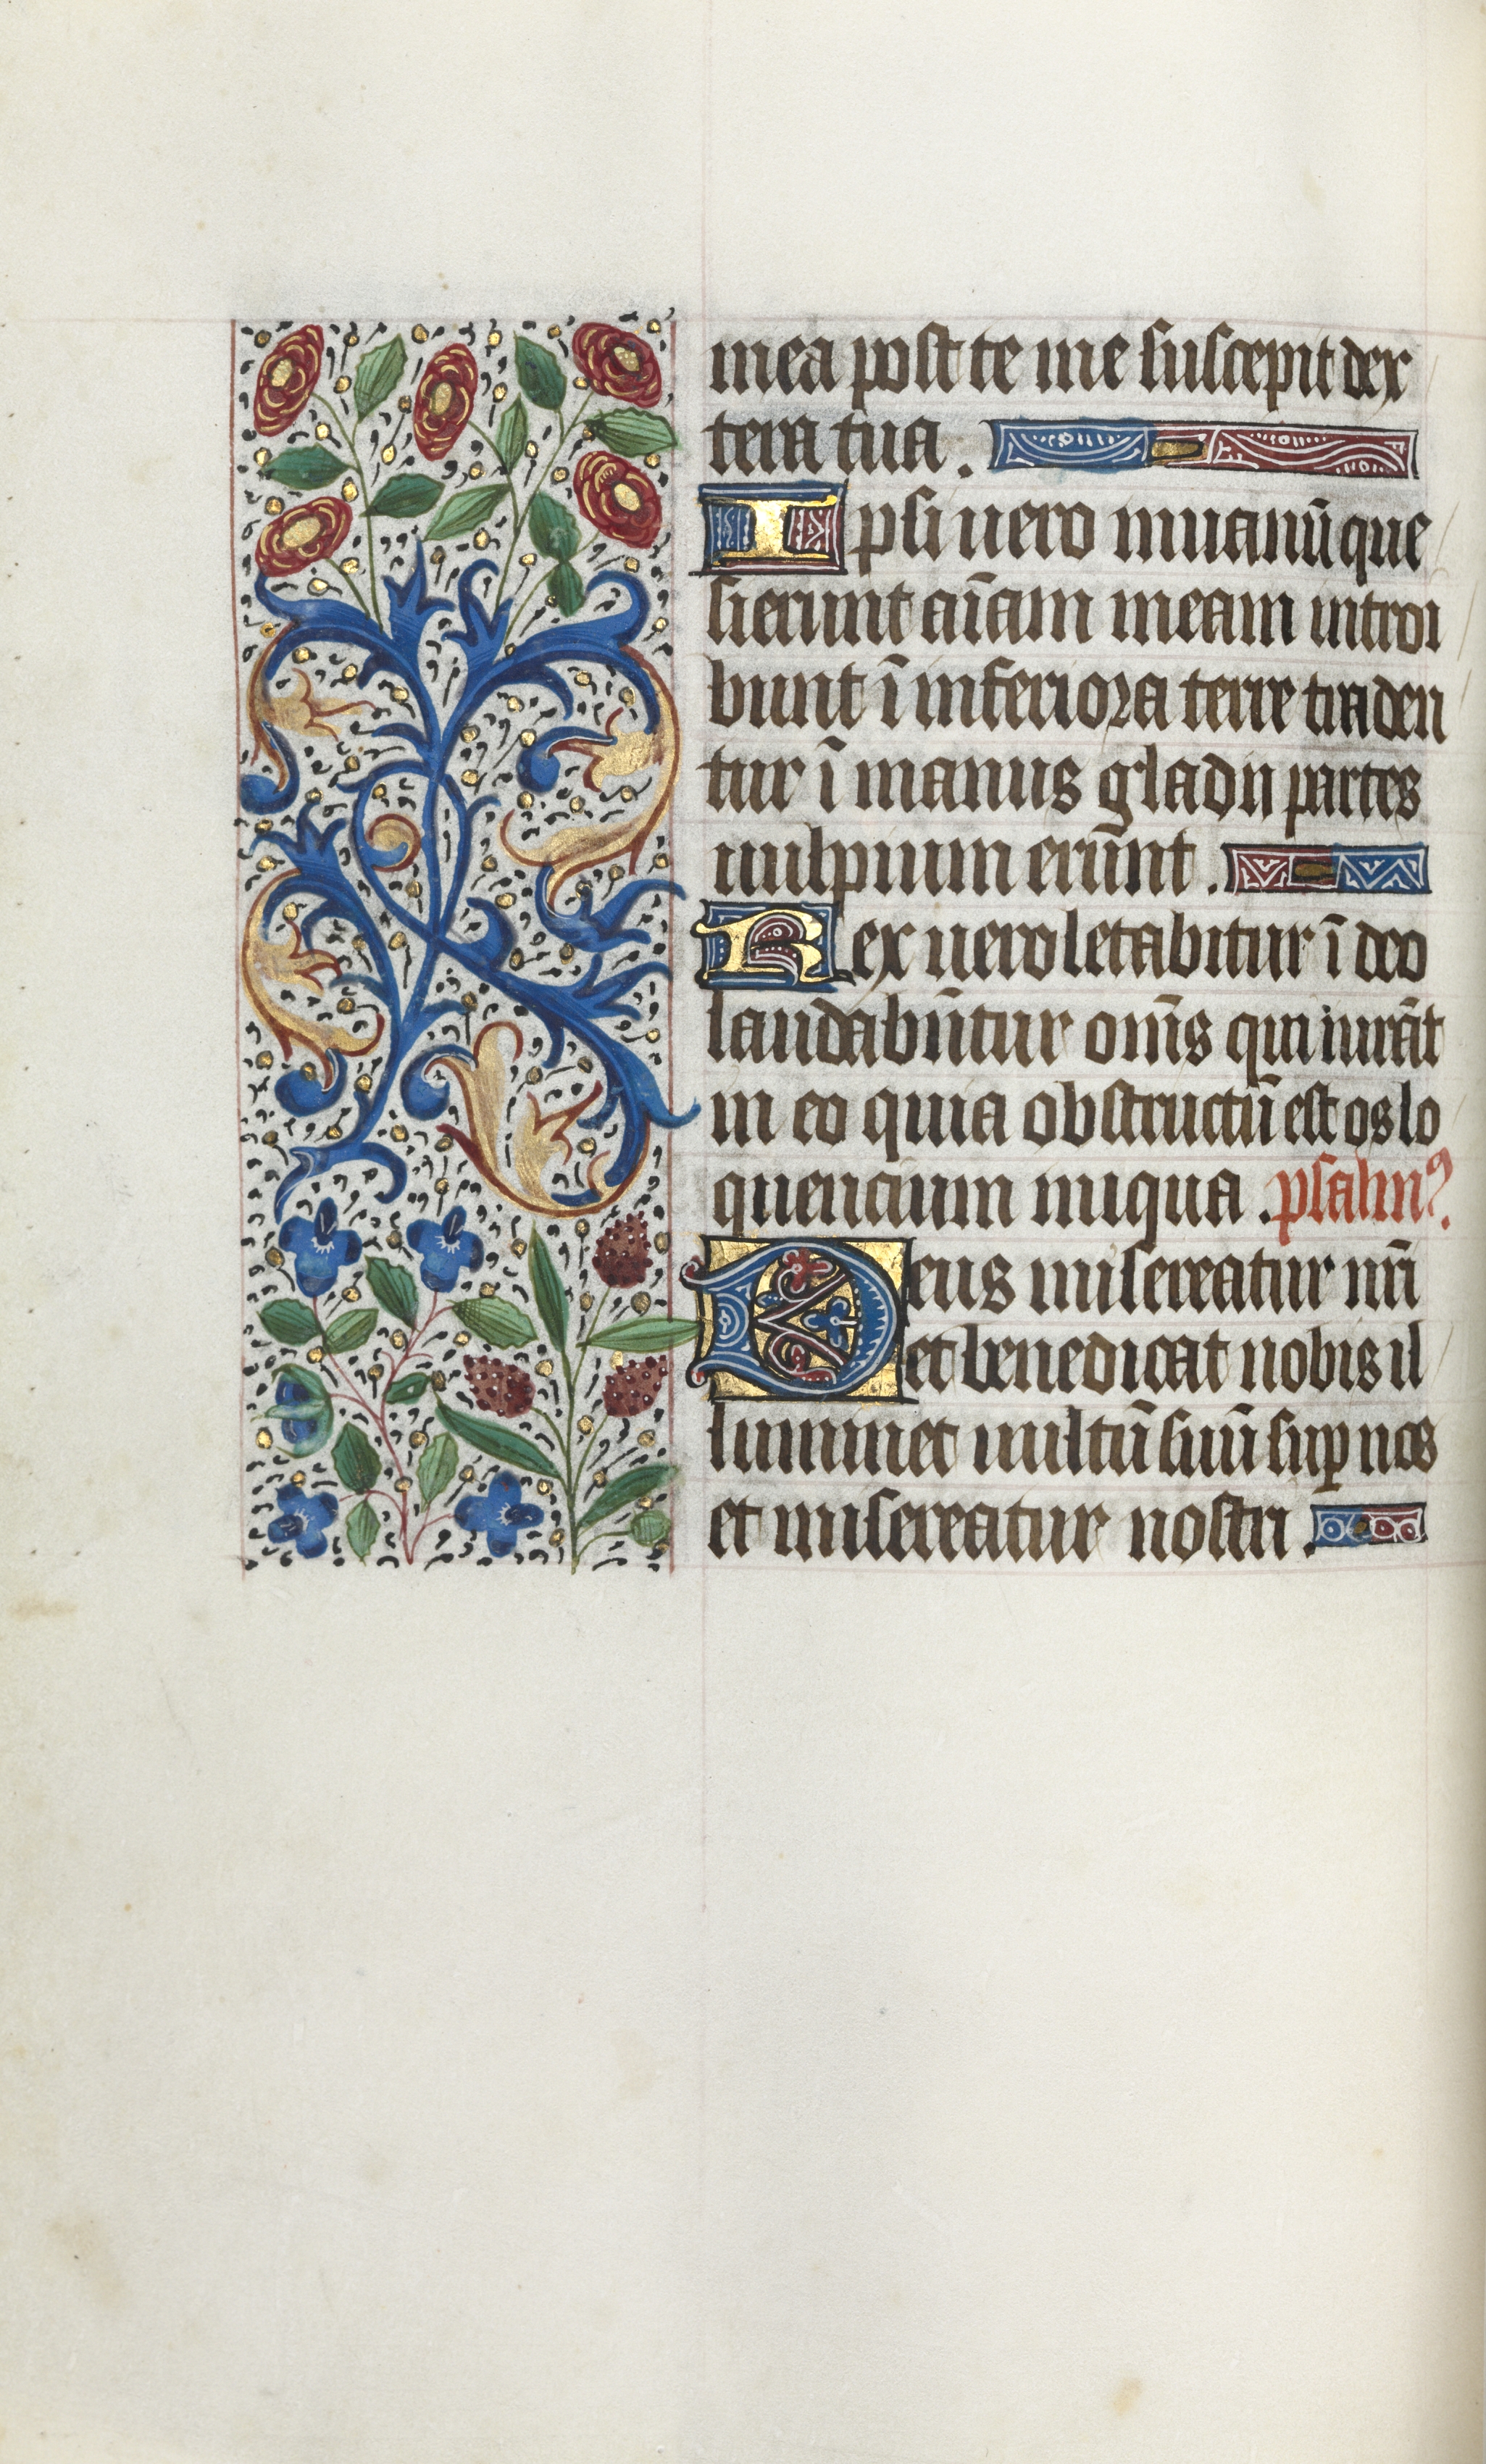 mea post te me suscepit dex
tera tua.
Ipsi uero in uanū que
sierunt aīam meam introi
bunt ī inferiora terre traden
tur ī manus gladii partes
uulpium erūnt.
Rex uero letabitur ī deo
laudabūtur om̄s qui iurāt
in eo quia obstructū est os lo
quencium iniqua. psalmꝰ.
Deus misereatur nr̄i
et benedicat nobis il
luminet uultū suū sup nos
et misereatur nostri.